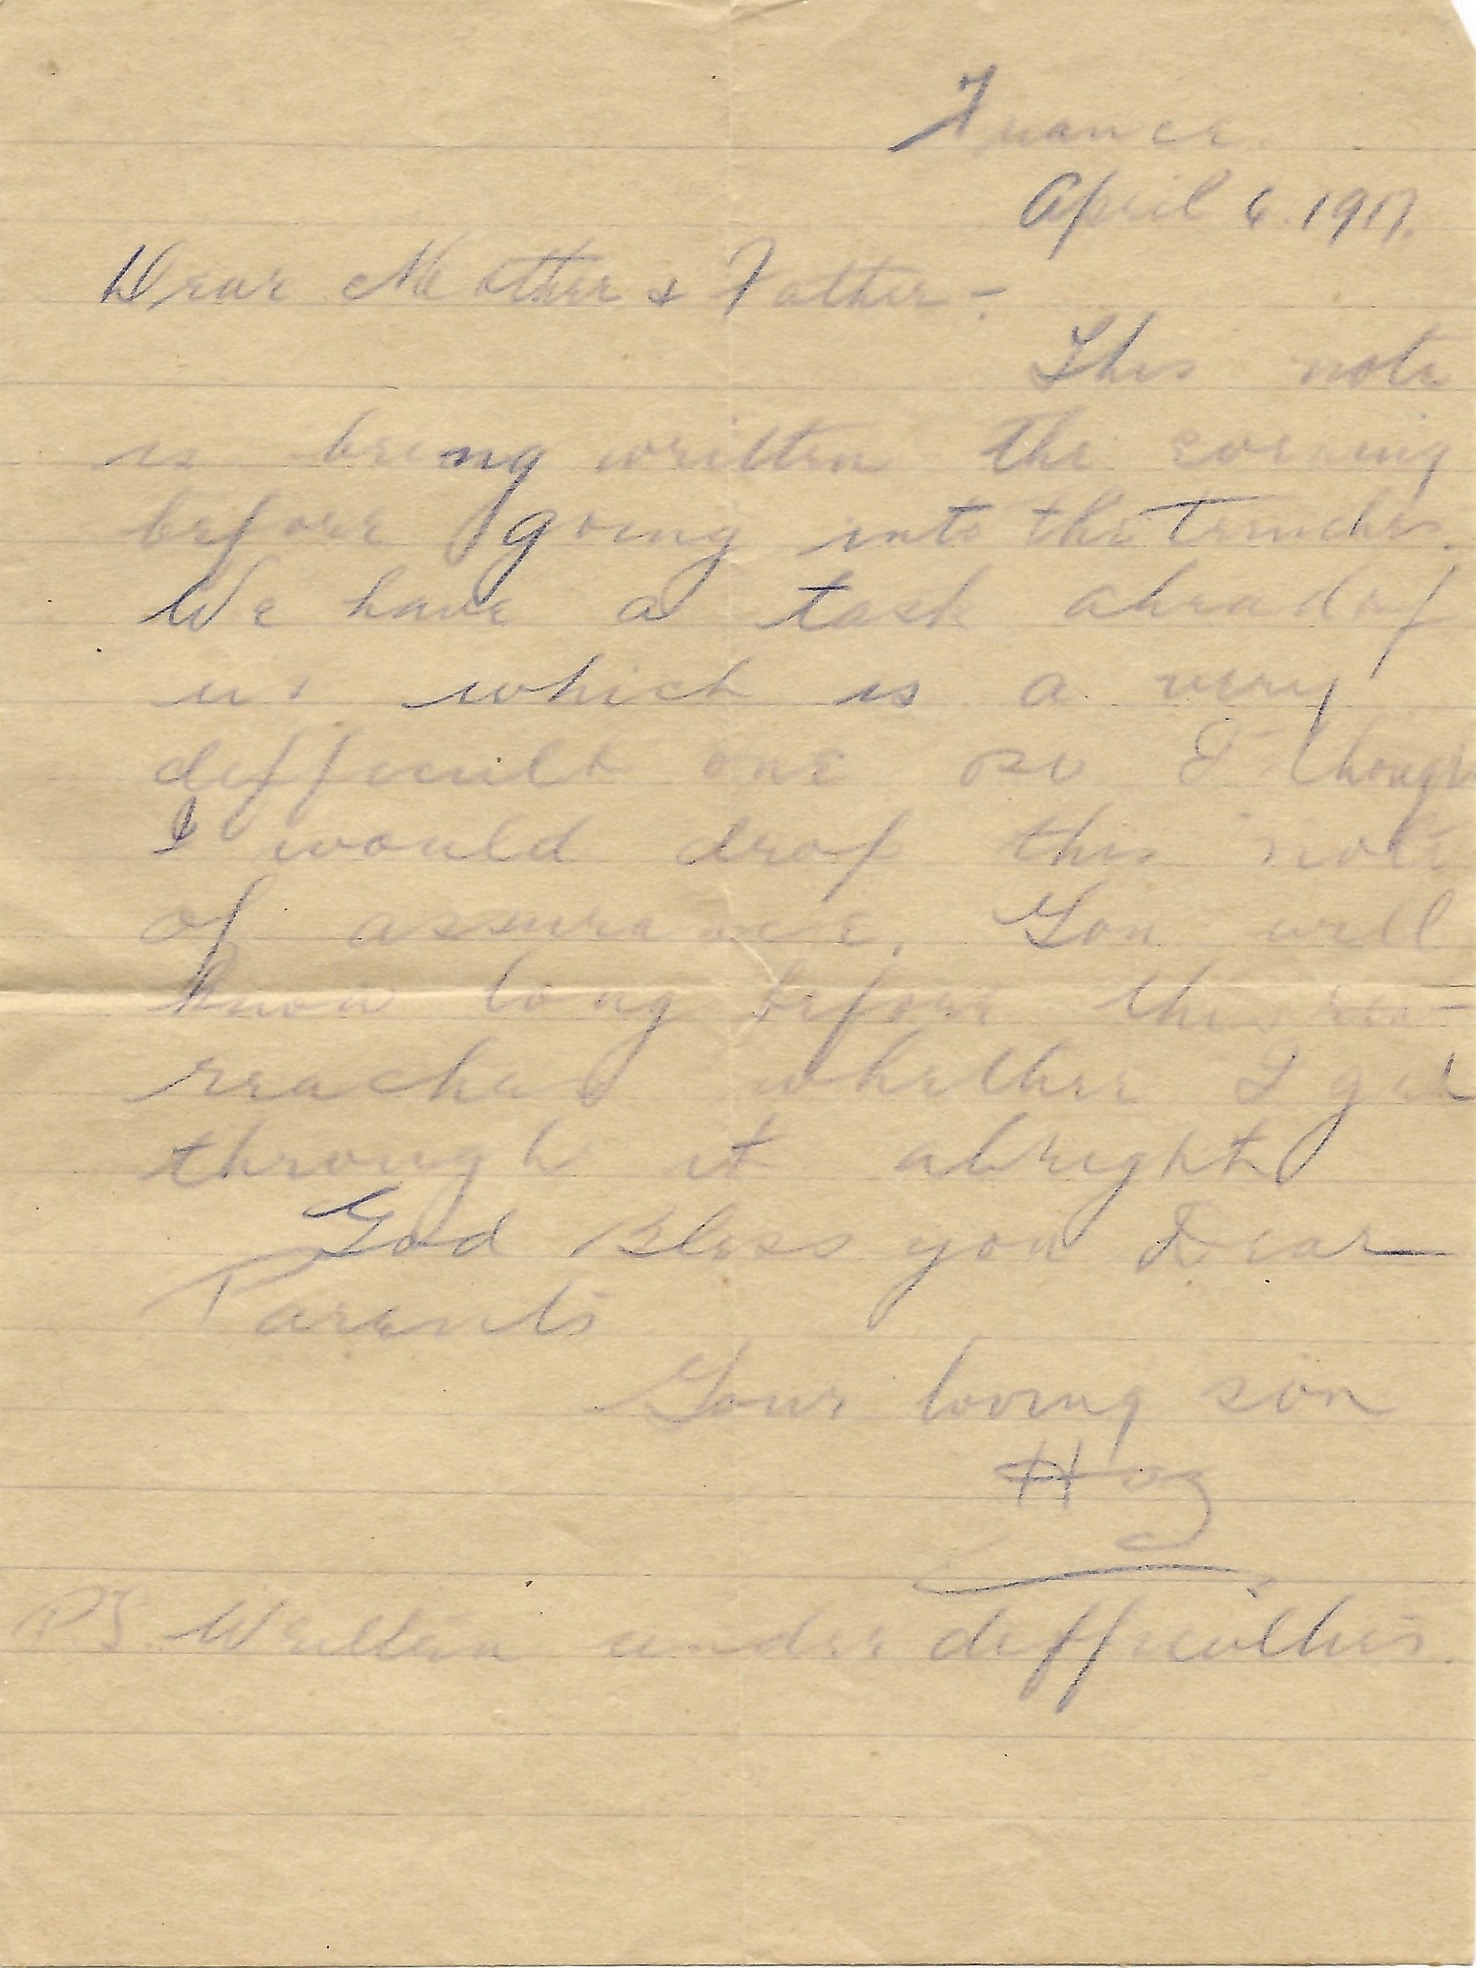 France.
April 6. 1917.
Dear Mother & Father -
This note
is being written the evening
before going into the Trenches.
We have a task ahead of
us which is a very
difficult one so I though
I would drop this note
of assurance. You will
know long before this
reaches whether I get
through it alright
God Bless you Dear
Parents
Your loving son
P.S. Written under difficulties.